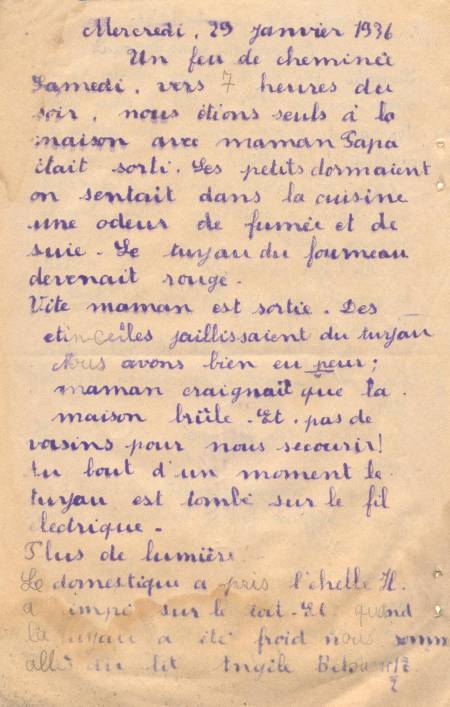 Mercredi, 29 Janvier 1936
Un feu de cheminée
Samedi, vers 7 heures du
soir, nous étions seuls à la
maison avec maman Papa
était sorti. Les petits dormaient
on sentait dans la cuisine
une odeur de fumée et de
suie. Le tuyau du fourneau
devenait rouge.
Vite maman est sortie. Des
etincelles jaillissaient du tuyau
Nous avons bien eu peur;
maman craignait que la
maison brûle. Et, pas de
voisins pour nous secourir!
Au bout d'un moment le
tuyau est tombé sur le fil
électrique.
Plus de lumière.
Le domestique a pris l'échelle Il
a impé sur le toit. Et quand
le tuyau a été froid nous somm
allé au lit Angèle